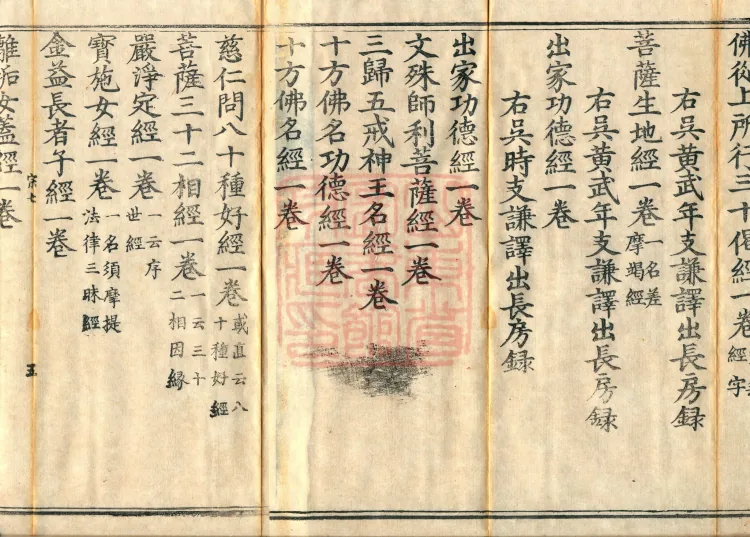 佛從上所行三十偈經一卷經字
右吳黃武年支謙譯出長房録
菩薩生地經一卷一名差摩竭經
右吳黃武年支謙譯出長房録
出家功德經一卷
右吳時支謙譯出長房録
出家功德經一卷
文殊師利菩薩經一卷
三歸五戒神王名經一卷
十方佛名功德經一卷
十方佛名經一卷
慈仁問八十種好經一卷或直云八十種好經
菩薩三十二相經一卷一云三十二相因緣
嚴淨定經一卷一云序世經
寶施女經一卷一名須摩提法律三昧經
金益長者子經一卷
宗七
五
離垢女蓋經一卷